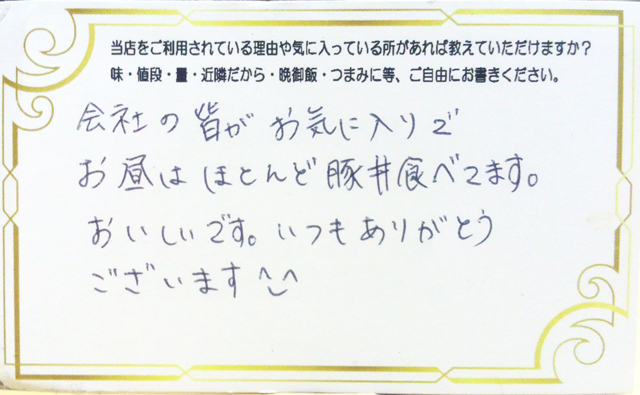 当店をご利用されている理由や気に入っている所があれば教えていただけますか？
味・値段・量・近隣だから・晩御飯・つまみに等、ご自由にお書きください。
会社の皆がお気に入りで
お昼はほとんど豚丼食べてます。
おいしいです。いつもありがとう
ございます^‿^